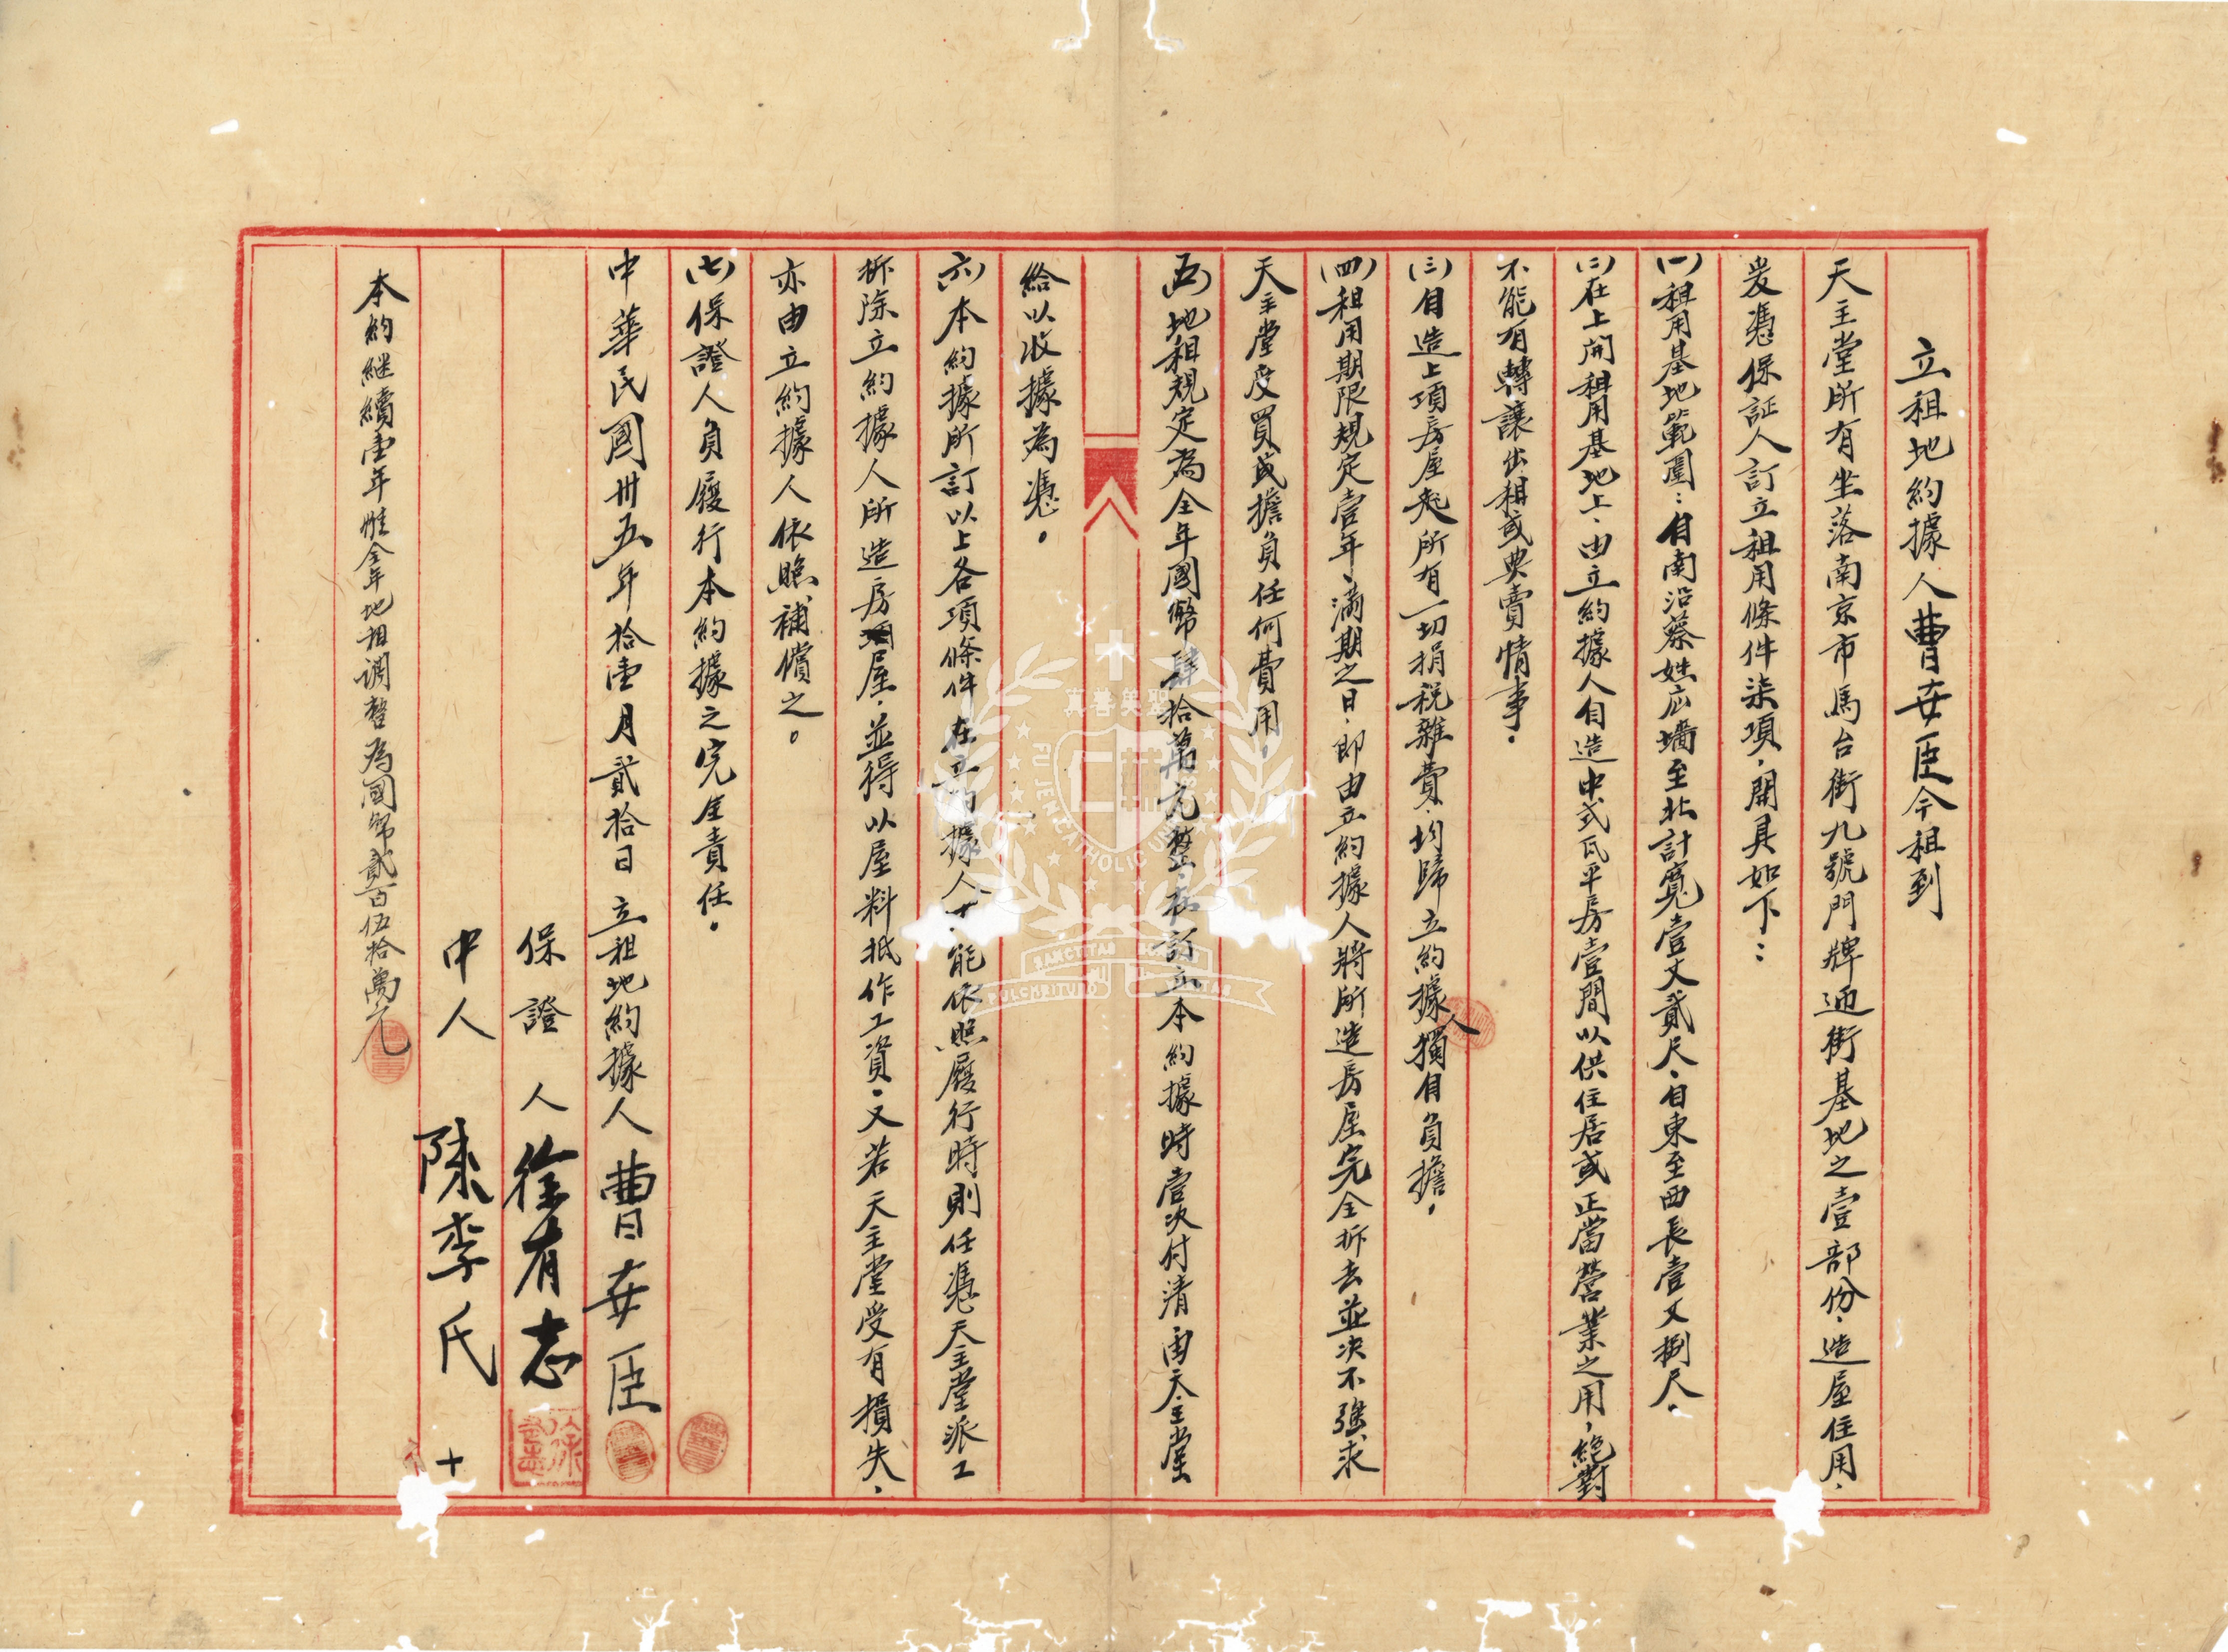 立租地約據人曹安臣今租到
天主堂所有坐落南京市馬台街九號門牌迊街基地之壹部份、造屋住用、
爰憑保証人訂立租用條件柒項、開具如下：
(一)租用基地範圍：自南沿蔡姓庄墻至北計寬壹丈貳尺、自東至西長壹丈捌尺、
(二)在上開租用基地上、由立約據人自造中式瓦平房壹間以供住居或正當營業之用、絕對
不能有轉讓出租或典賣情事。
(三)自造上項房屋起所有一切捐稅雜費、均歸立約據人獨自負擔。
(四)租用期限規定壹年、滿期之日、即由立約據人將所造房屋完全拆去並決不強求
天主堂受買或擔負任何費用。
(五)地租規定為全年國幣肆拾萬元整、在訂立本約據時壹次付清由天主堂
給以收據為憑。
(六)本約據所訂以上各項條件在立約據人不能依照履行時則任憑天主堂派工
拆除立約據人所造房屋、並得以屋料抵作工資。又若天主堂受有損失、
亦由立約據人依照補償之。
(七)保證人負履行本約據之完全責任。
中華民國卅五年拾壹月貳拾日 立租地約據人 曹安臣
保證人 徐有志
中人 陳李氏 十
本約繼續壹年惟全年地租調整為國幣貳百伍拾萬元
真善美聖
FU JEN CATHOLIC UNIVERSITY
SANCTITAS BONITAS
PULCHRITUDO VERITAS